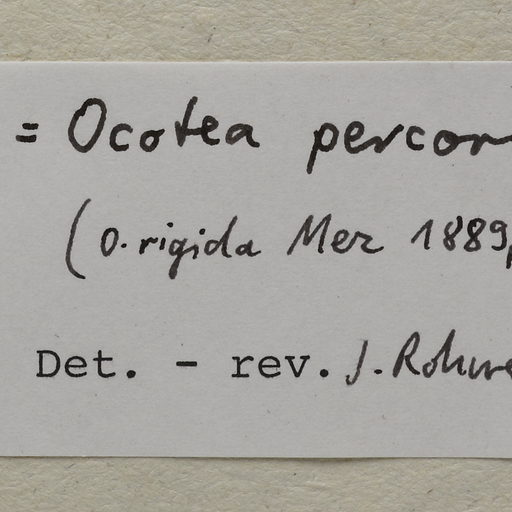 = Ocotea percor
(O. rigida Mez 1889,
Det. - rev. J. Rohwe